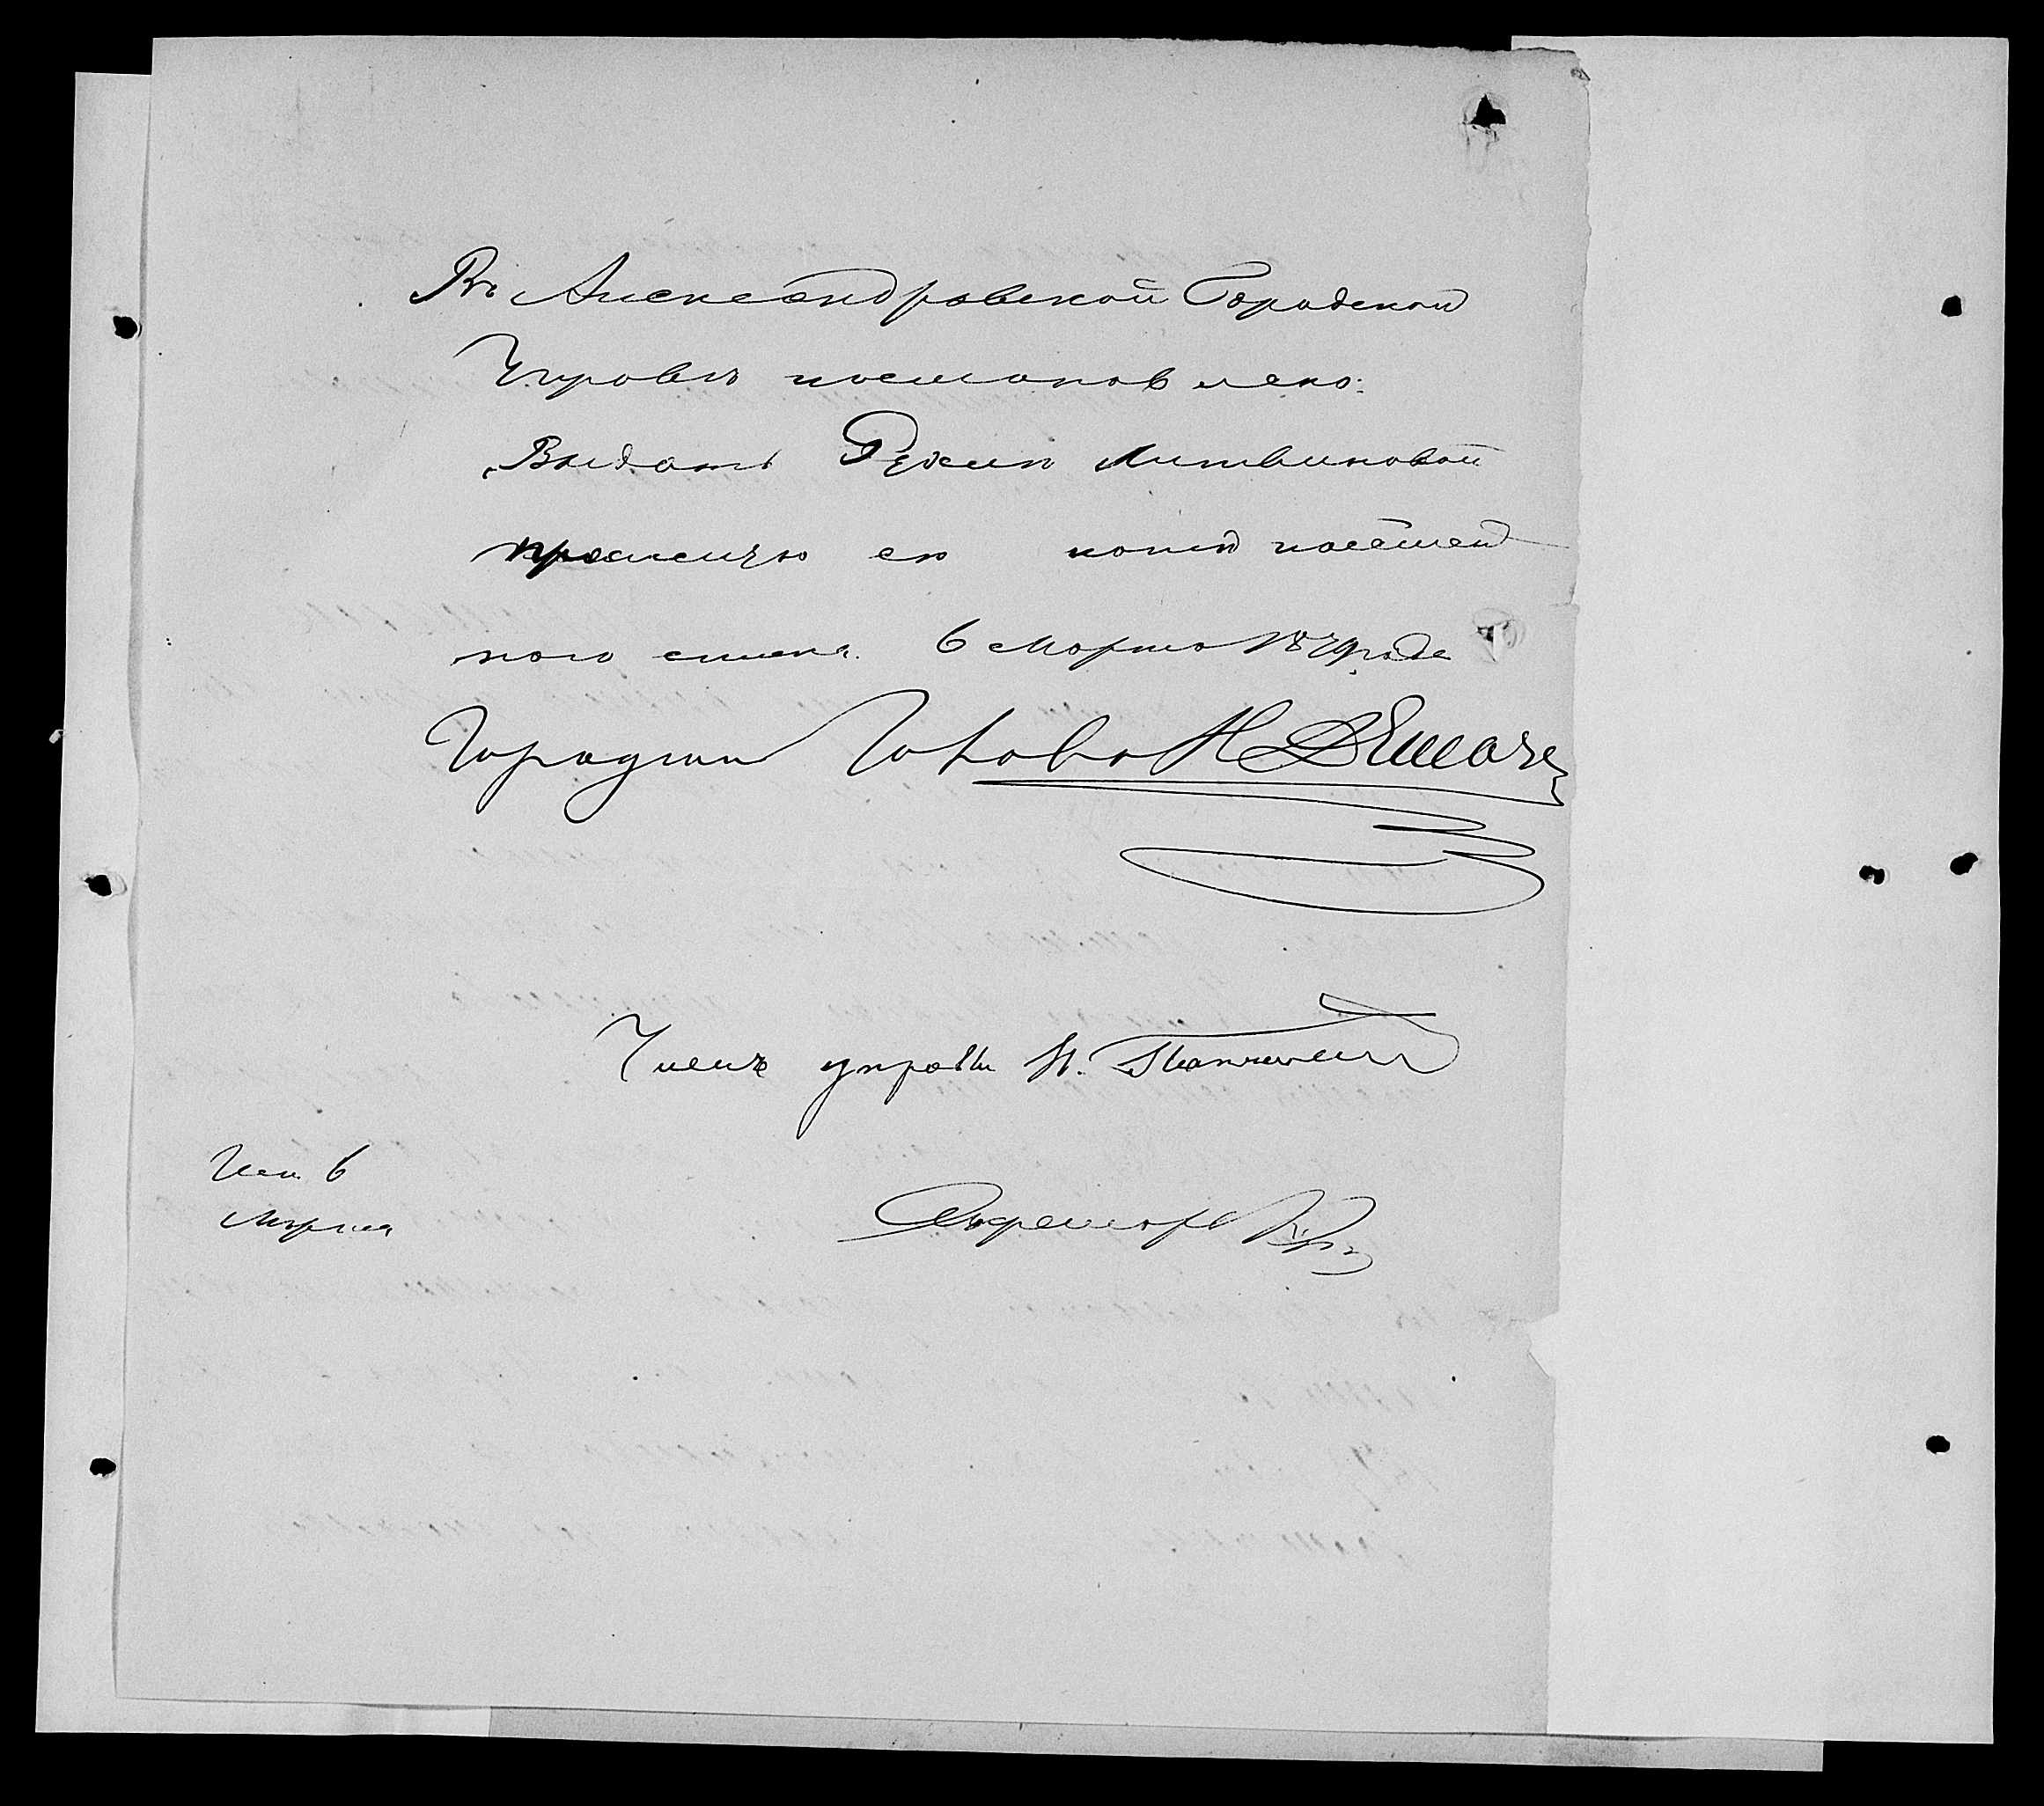 Въ Александровской Городской
Управѣ постановлено:
Выдать Литвиновой
просимую ею копію посемей
наго списка. 6 Марта 1879 года
Городской Голова Н
Членъ управы Н.
Исп. 6
Марта
Секретарь